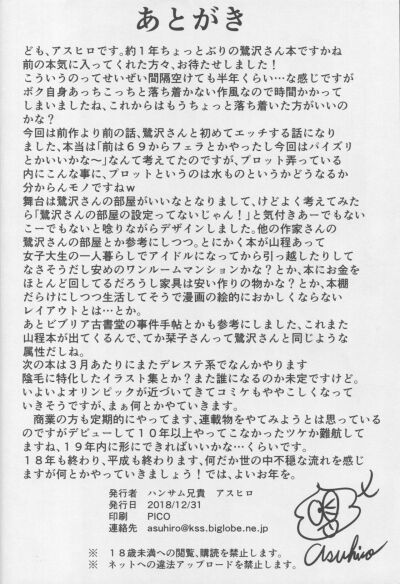 あとがき
ども、アスヒロです。約１年ちょっとぶりの鷺沢さん本ですかね
前の本気に入ってくれた方々、お待たせしました！
こういうのってせいぜい間隔空けても半年くらい…な感じですが
ボク自身あっちこっちと落ち着かない作風なので時間かかって
しまいましたね、これからはもうちょっと落ち着いた方がいいの
かな？
今回は前作より前の話、鷺沢さんと初めてエッチする話になり
ました、本当は「前は６９からフェラとかやったし今回はパイズリ
とかいいかな～」なんて考えてたのですが、プロット弄っている
内にこんな事に、プロットというのは水ものというかどうなるか
分からんモノですねｗ
舞台は鷺沢さんの部屋がいいなとなりまして、けどよく考えてみた
ら「鷺沢さんの部屋の設定ってないじゃん！」と気付きあーでもない
こーでもないと唸りながらデザインしました。他の作家さんの
鷺沢さんの部屋とか参考にしつつ。とにかく本が山程あって
女子大生の一人暮らしでアイドルになってから引っ越したりして
なさそうだし安めのワンルームマンションかな？とか、本にお金を
ほとんど回してるだろうし家具は安い作りの物かな？とか、本棚
だらけにしつつ生活してそうで漫画の絵的におかしくならない
レイアウトとは…とか。
あとビブリア古書堂の事件手帖とかも参考にしました、これまた
山程本が出てくるんで、てか栞子さんって鷺沢さんと同じような
属性だしね。
次の本は３月あたりにまたデレステ系でなんかやります
陰毛に特化したイラスト集とか？また誰になるのか未定ですけど。
いよいよオリンピックが近づいてきてコミケもややこしくなって
いきそうですが、まぁ何とかやていきます。
商業の方も定期的にやってます、連載物をやてみようとは思っている
のですがデビューして１０年以上やってこなかったツケか難航して
ますね、１９年内に形にできればいいかな…くらいです。
１８年も終わり、平成も終わります、何だか世の中不穏な流れを感じ
ますが何とかやっていきましょう！では、よいお年を。
発行者 ハンサム兄貴 アスヒロ
発行日 2018/12/31
印刷 PICO
連絡先 asuhiro@kss.biglobe.ne.jp
asuhiro
※ １８歳未満への閲覧、購読を禁止します。
※ ネットへの違法アップロードを禁止します。